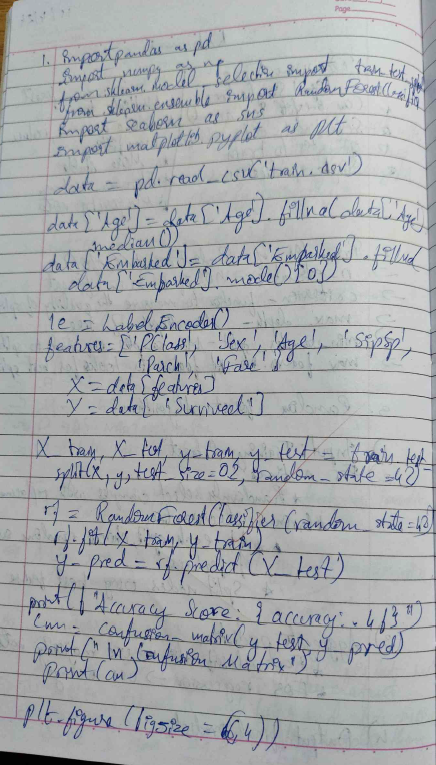 Page
1. Import pandas as pd
Import numpy as np
from sklearn.model selection import train test split
from sklearn.ensemble import RandomForestClassifier
Import seaborn as sns
Import matplotlib pyplot as plt
data = pd.read_csv('train.csv')
data['Age'] = data['Age'].fillna(data['Age'].
median())
data['Embarked'] = data['Embarked'].fillna
data['Embarked'].mode()[0])
le = Label Encoder()
features = ['PClass', 'Sex', 'Age', 'SipSp',
'Parch', 'Fare']
X = data[features]
Y = data['Survived']
X_train, X_test y-train, y_test = train_test-
split(X, y, test_size=02, random-state=42)
rf = RandomForestClassifier(random state=42)
rf.fit(X_train, y_train)
y-pred = rf.predict(X_test)
print(f"Accuracy Score: {accuracy:.4f}")
cm = confusion-matrix(y_test, y pred)
print("\n Confusion Matrix")
print(cm)
plt.figure(figsize=(6,4))